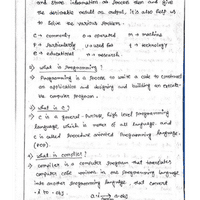 and store information as process data and give
the desirable result as output, it is also help us
to solve the various problem.
C → commonly O → operated M → machine
P → particularly U → used for T → technology
E → educational R → research.
what is programming?
Programming is a process to write a code to combined
an application and designing and building an execute-
the computer program.
what is c?
C is a general-purpose high level programming
language which is mother of all language, and
C is called Procedure oriented Programming language.
(POP)
what is compiler?
compiler is a computer program that translates
computer code written in one programming language
into another programming language, that convert